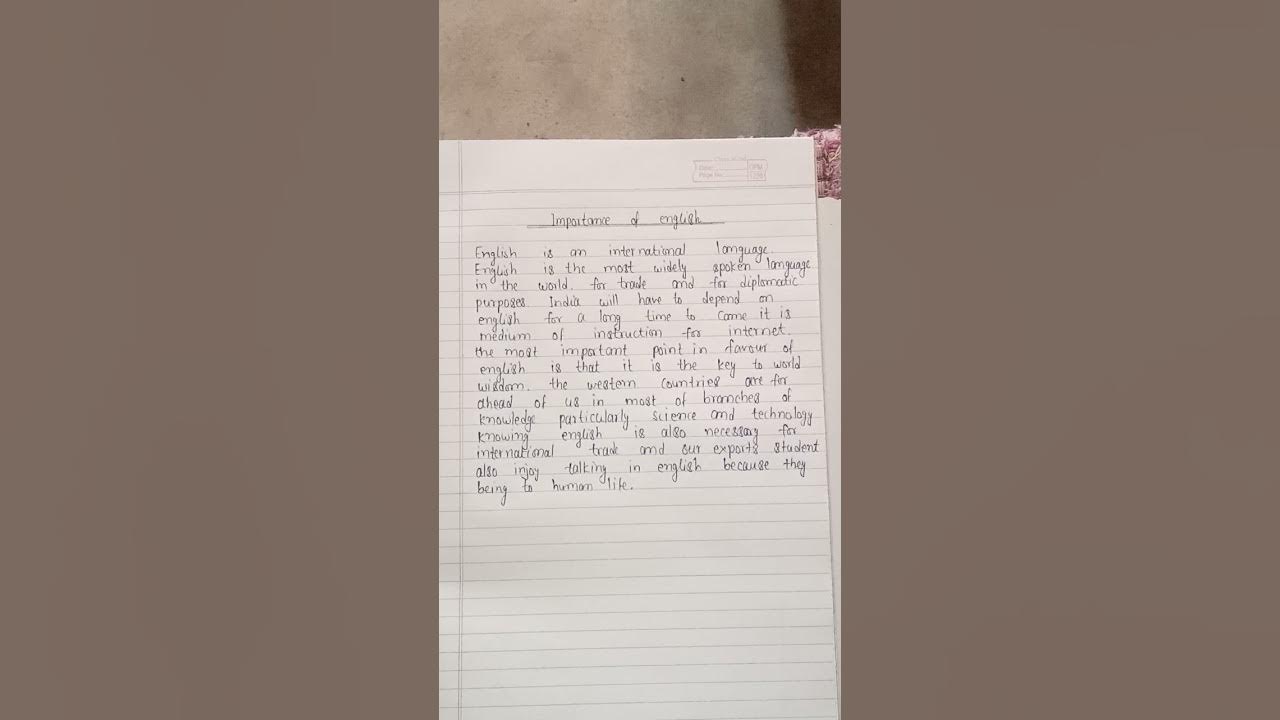 Date:
Page No.
Importance of english
English is an international language.
English is the most widely spoken language
in the world. for trade and for diplomatic
purposes. India will have to depend on
english for a long time to come it is
medium of instruction for internet.
the most important point in favour of
english is that it is the key to world
wisdom. the western countries are far
ahead of us in most of branches of
knowledge particularly science and technology
knowing english is also necessary for
international trade and our exports student
also injoy talking in english because they
being to human life.